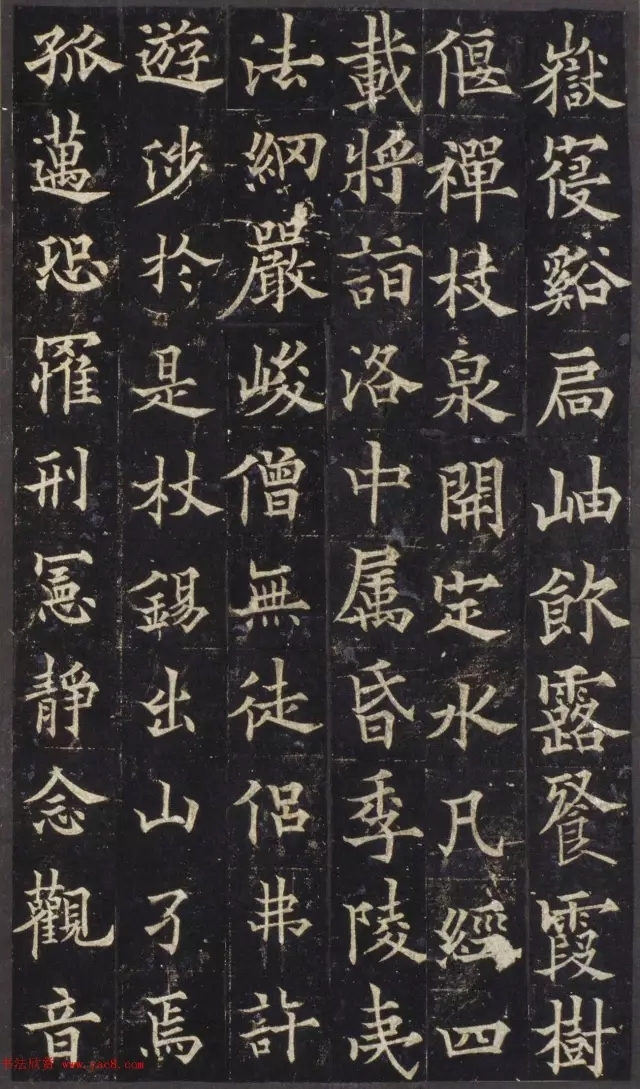 嶽寑谿扃岫飲露飡霞樹
偃禪枝泉開定水凡經四
載將詣洛中属昏季陵夷
法綱嚴峻僧無徒侣弗許
遊涉於是杖錫出山孑焉
孤邁恐罹刑憲靜念觀音
书法欣赏 www.yac8.com